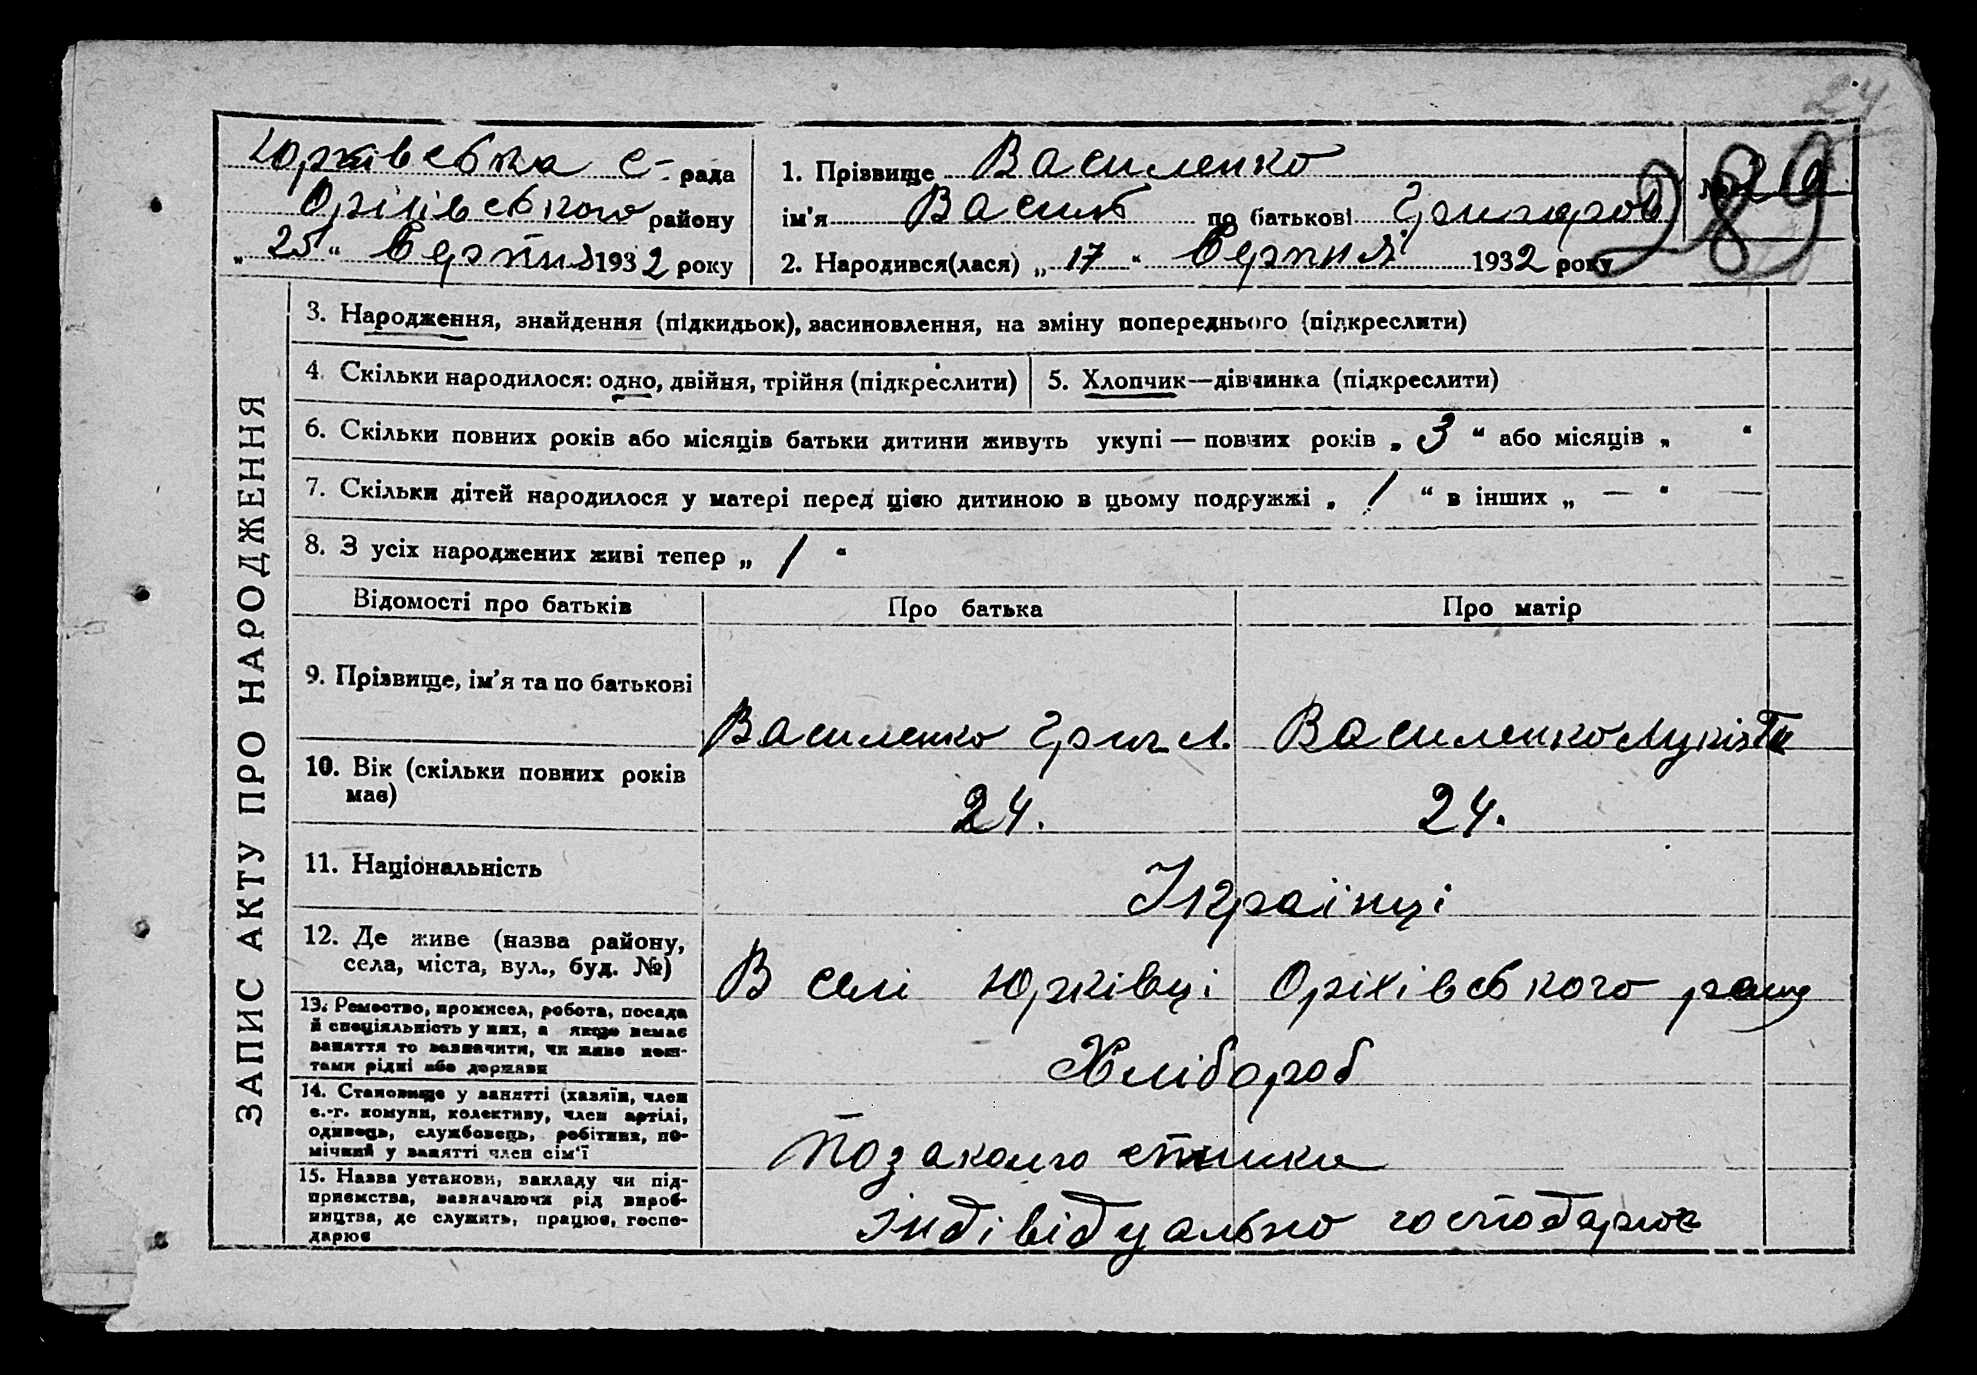 24
Юрківська с. рада
Оріхівського району
„ 25 “ Серпня 1932 року
1. Прізвище Василенко
ім'я Василь по батькові Григоров
2. Народився(лася) „ 17 “ Серпня 1932 року
289
ЗАПИС АКТУ ПРО НАРОДЖЕННЯ
3. Народження, знайдення (підкидьок), засиновлення, на зміну попереднього (підкреслити)
4. Скільки народилося: одно, двійня, трійня (підкреслити)
5. Хлопчик—дівчинка (підкреслити)
6. Скільки повних років або місяців батьки дитини живуть укупі — повних років „ 3 “ або місяців „ “
7. Скільки дітей народилося у матері перед цією дитиною в цьому подружжі „ 1 “ в інших „ — “
8. З усіх народжених живі тепер „ 1 “
Відомості про батьків
Про батька
Про матір
9. Прізвище, ім'я та по батькові
Василенко Григ Л.
Василенко
10. Вік (скільки повних років
має)
24.
24.
11. Національність
Українці
12. Де живе (назва району,
села, міста, вул., буд. №)
В селі Юрківці Оріхівського райну
13. Ремество, промисел, робота, посада
й спеціяльність у них, а якщо немає
заняття то зазначити, чи живе кош-
тами рідні або держави
Хлібороб
14. Становище у занятті (хазяїн, член
с.-г. комуни, колективу, член артілі,
одинець, службовець, робітник, по-
мічний у занятті член сім'ї
Позаколгостники
15. Назва установи, закладу чи під-
приємства, зазначаючи рід вироб-
ництва, де служить, працює, госпо-
дарює
індівідуально господарює